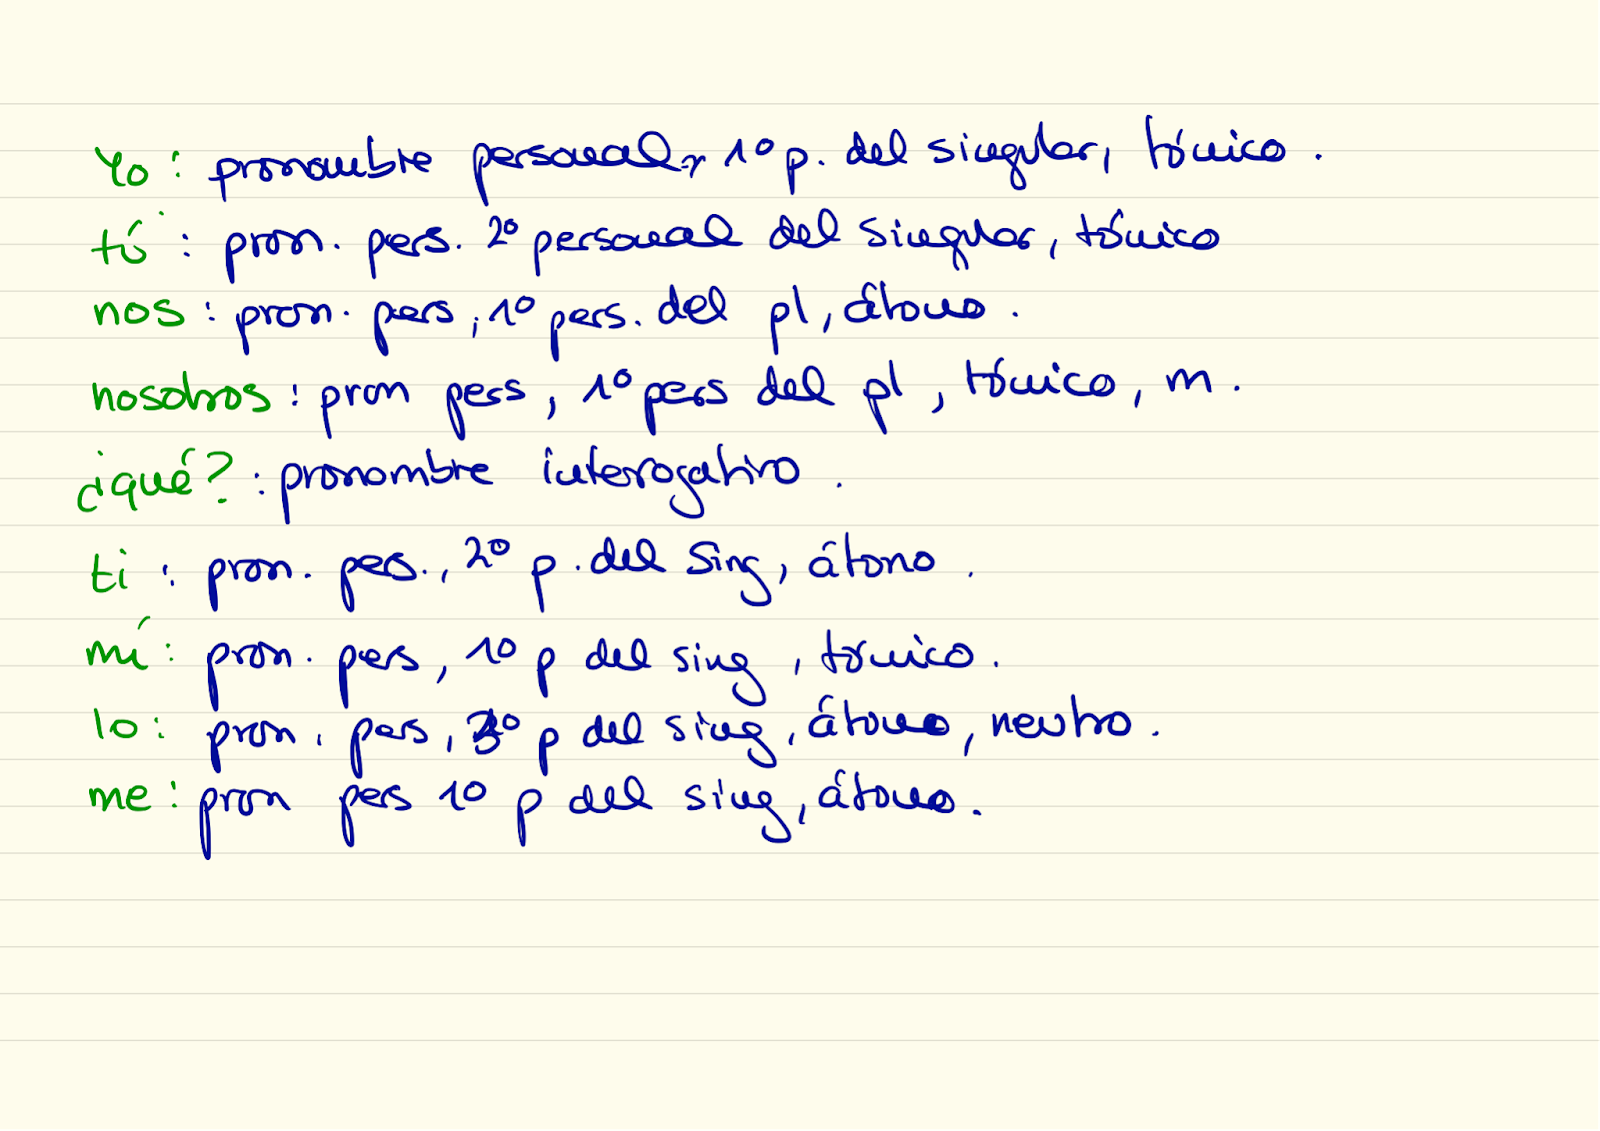 Yo: pronombre personal, 1º p. del singular, tónico.
tú: pron. pers. 2º personal del singular, tónico
nos: pron. pers, 1º pers. del pl, átono.
nosotros: pron pers, 1º pers del pl, tónico, m.
¿qué?: pronombre interrogativo.
ti: pron. pers., 2º p. del sing, átono.
mí: pron. pers, 1º p del sing, tónico.
lo: pron. pers, 3º p del sing, átono, neutro.
me: pron pers 1º p del sing, átono.